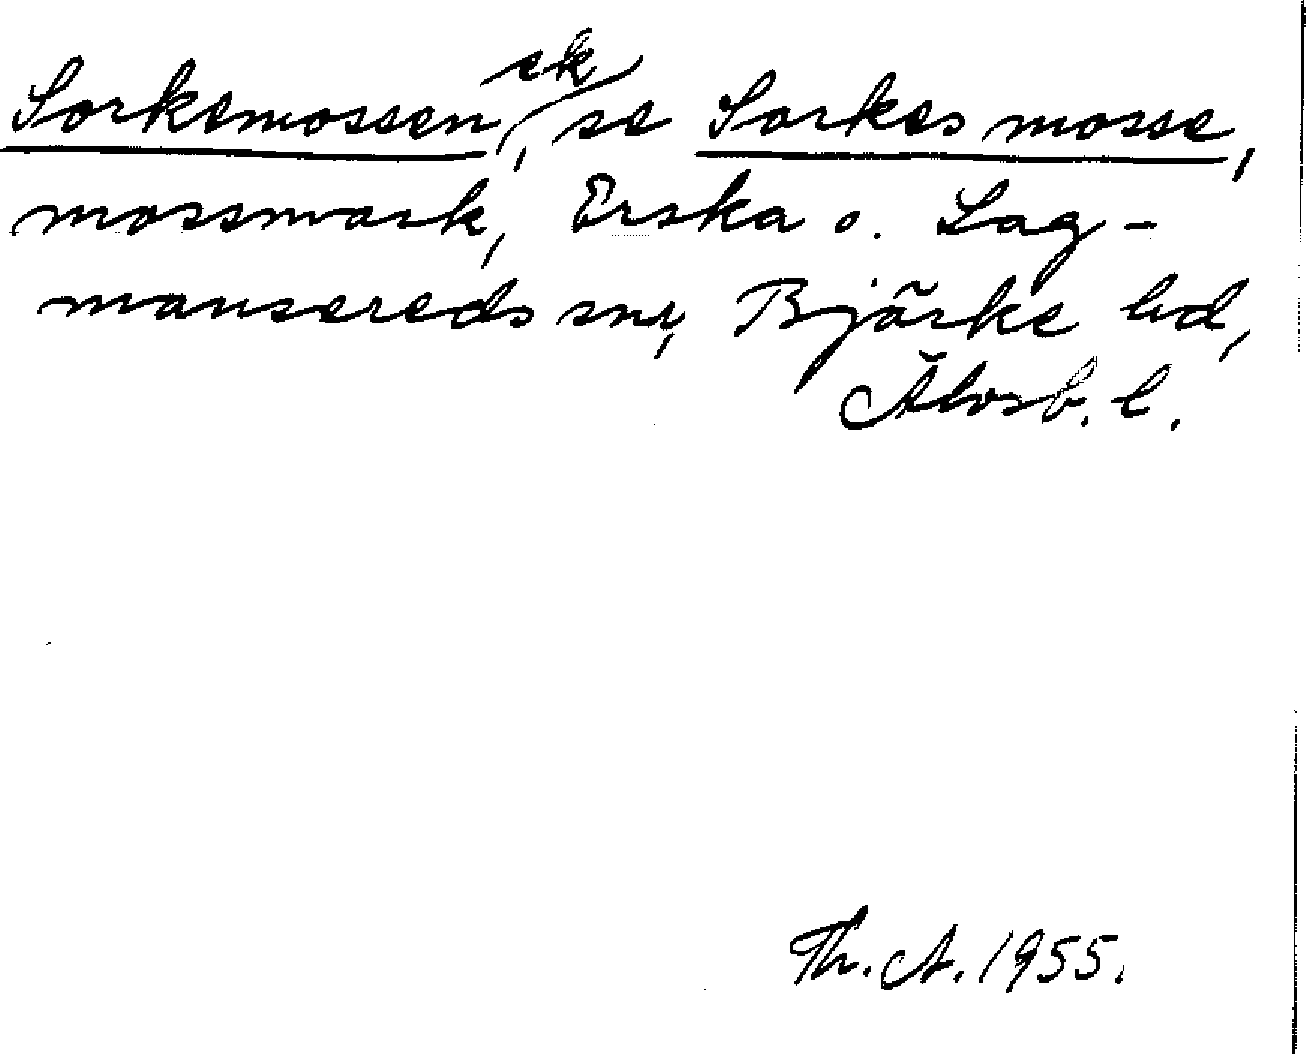 Sorkemossen, ek se Sorkes mosse,
mossmark, Erska o. Lag-
mansereds snr, Bjärke hd,
Älvsb. l.
Th. A. 1955.